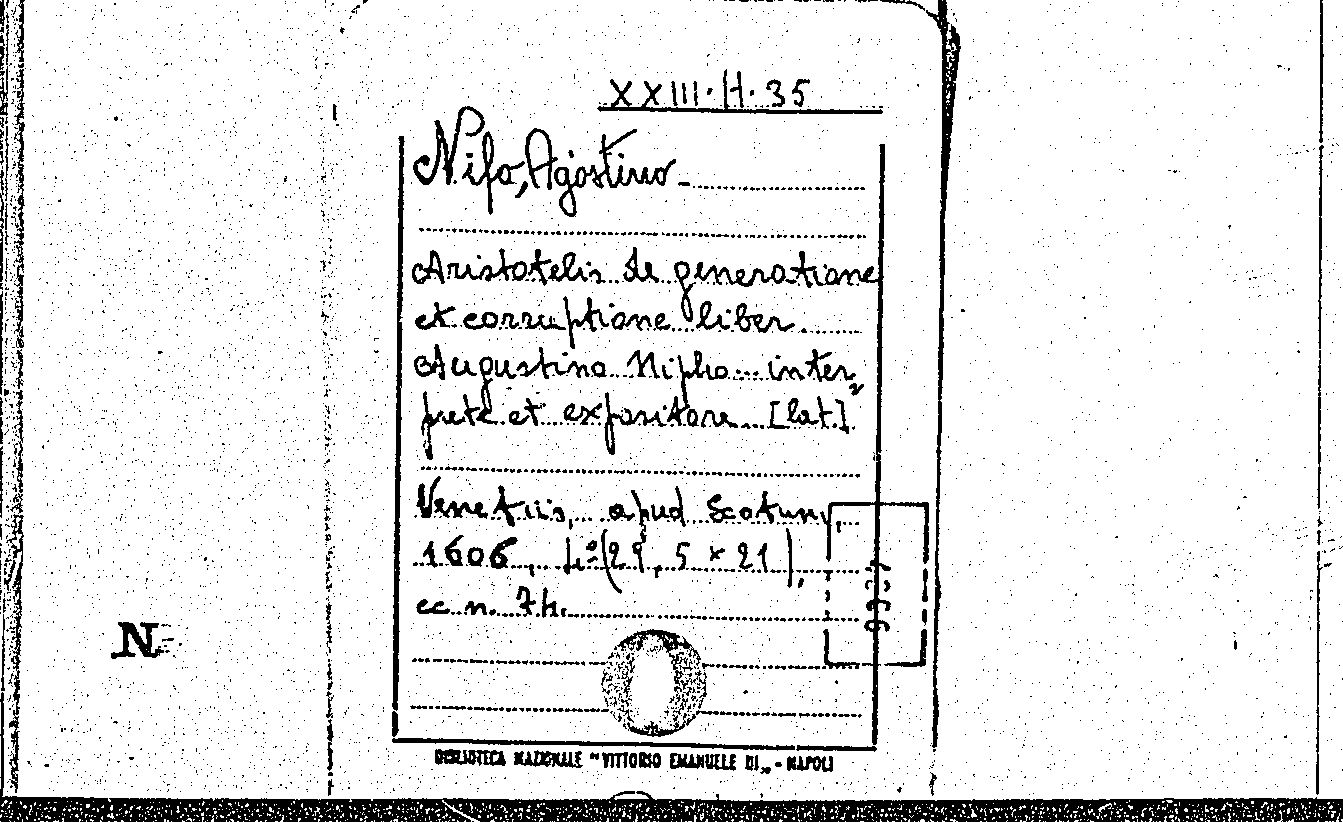 XXIII·H·35
Nifo, Agostino -
Aristotelis de generatione
et corruptione liber
Augustino Nipho... inter
prete et expositore... [lat]
Venetiis, apud Scotum,
1606, 4º (29,5 × 21),
cc n. 74.
N
BIBLIOTECA NAZIONALE "VITTORIO EMANUELE III" - NAPOLI